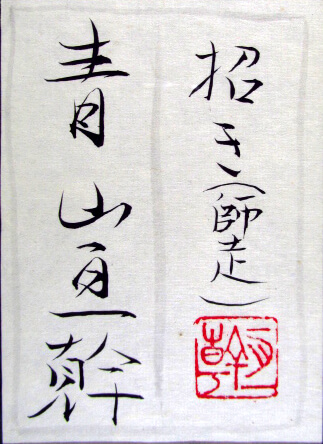 招き(師走)
青山亘幹